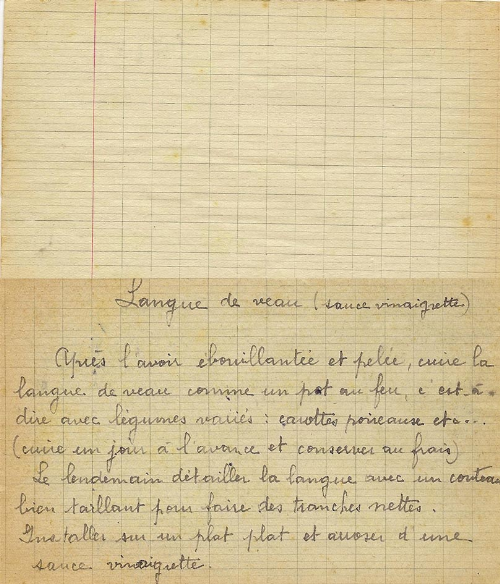 Langue de veau (sauce vinaigrette)
Après l'avoir ébouillantée et pelée, cuire la
langue de veau comme un pot au feu, c'est-à-
dire avec légumes variés : carottes poireaux etc...
(cuire un jour à l'avance et conserver au frais)
Le lendemain détailler la langue avec un couteau
bien taillant pour faire des tranches nettes.
Installer sur un plat plat et arroser d'une
sauce vinaigrette.